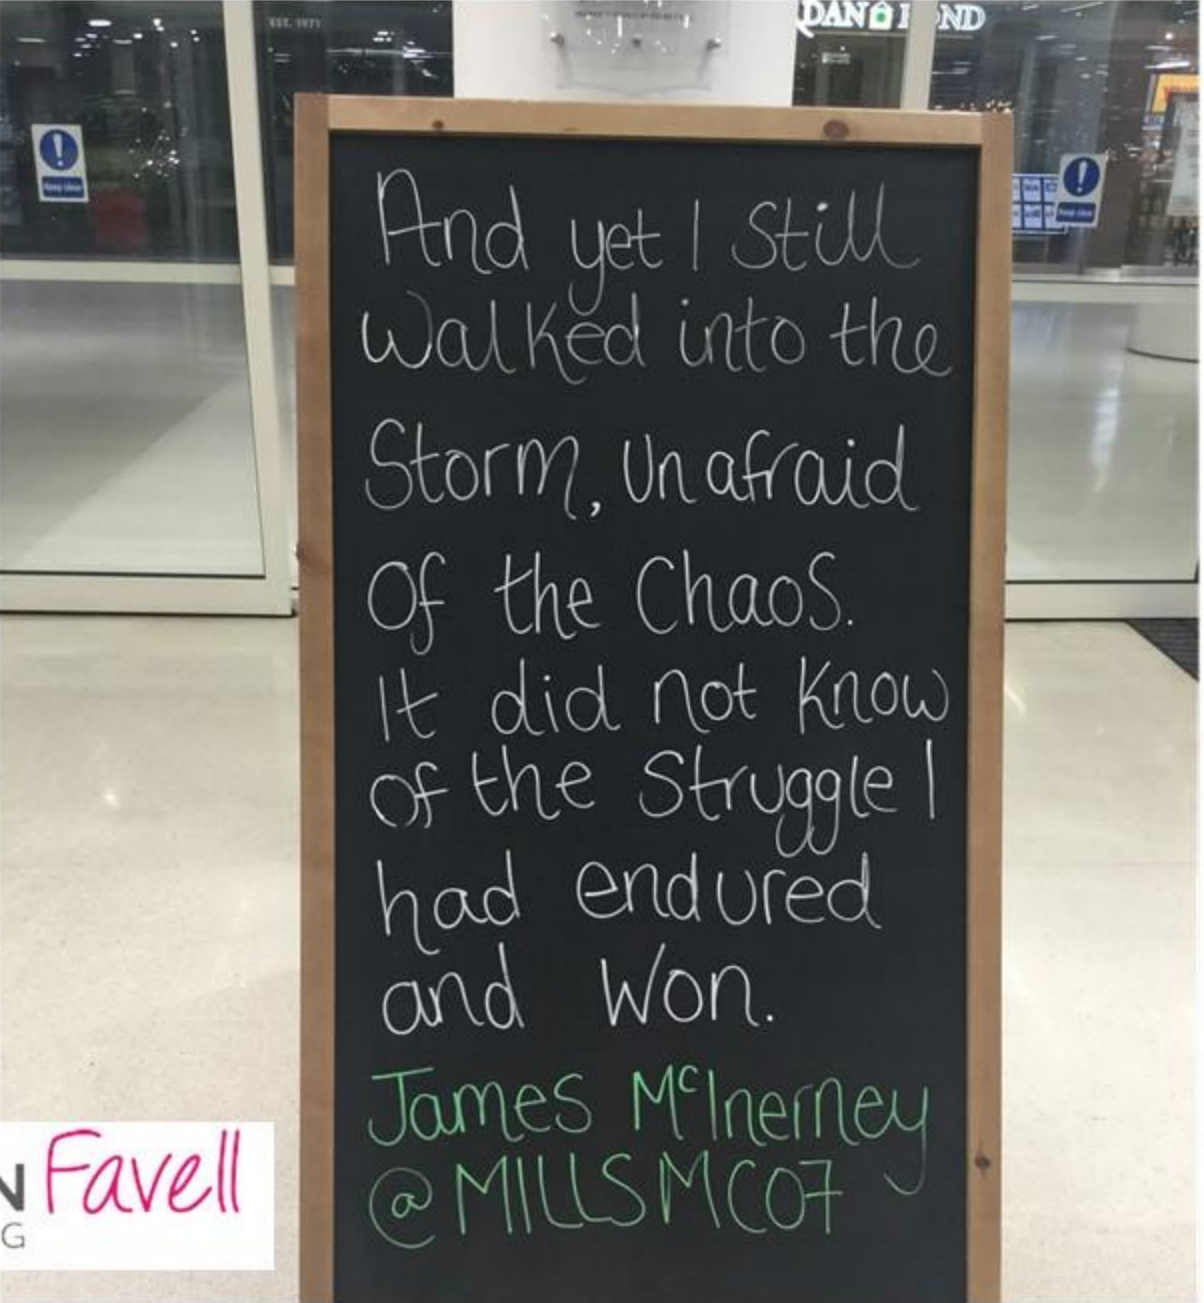 EST. 1971
Keep clear
Keep clear
And yet I Still
Walked into the
Storm, Unafraid
Of the Chaos.
It did not Know
of the Struggle I
had endured
and Won.
James McInerney
@MILLSMC07
N Favell
G